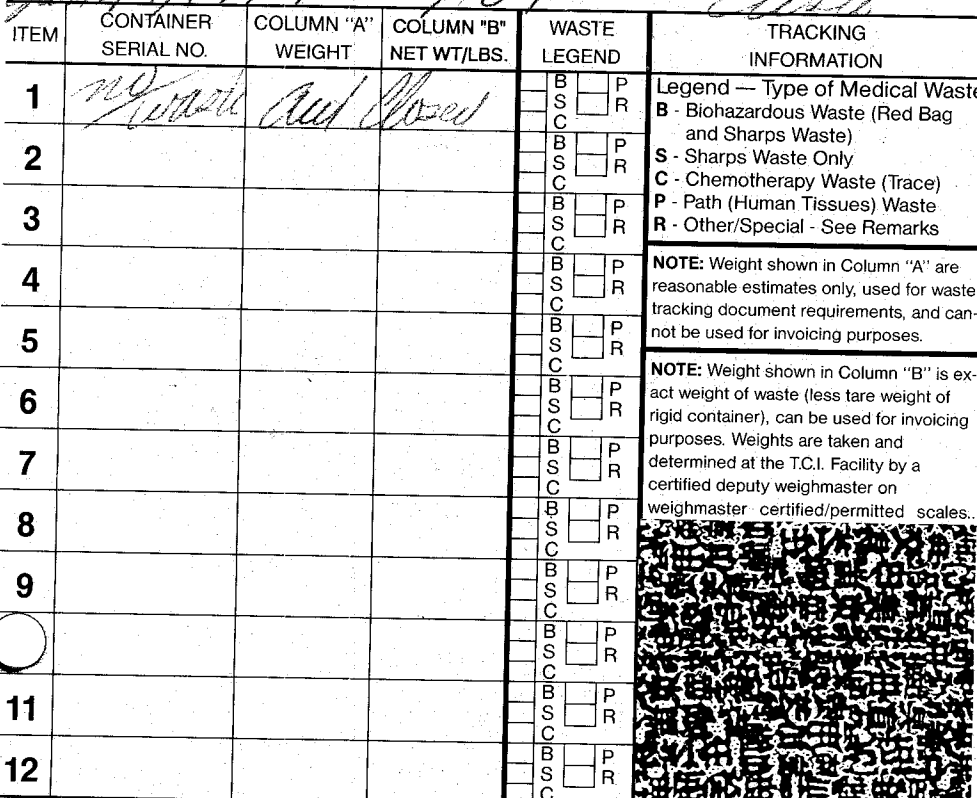 ITEM CONTAINER SERIAL NO. COLUMN "A" WEIGHT COLUMN "B" NET WT/LBS. WASTE LEGEND TRACKING INFORMATION
1 no waste and Closed B S C P R
2 B S C P R
3 B S C P R
4 B S C P R
5 B S C P R
6 B S C P R
7 B S C P R
8 B S C P R
9 B S C P R
B S C P R
11 B S C P R
12 B S C P R
Legend — Type of Medical Waste
B - Biohazardous Waste (Red Bag
and Sharps Waste)
S - Sharps Waste Only
C - Chemotherapy Waste (Trace)
P - Path (Human Tissues) Waste
R - Other/Special - See Remarks
NOTE: Weight shown in Column "A" are
reasonable estimates only, used for waste
tracking document requirements, and can-
not be used for invoicing purposes.
NOTE: Weight shown in Column "B" is ex-
act weight of waste (less tare weight of
rigid container), can be used for invoicing
purposes. Weights are taken and
determined at the T.C.I. Facility by a
certified deputy weighmaster on
weighmaster certified/permitted scales..